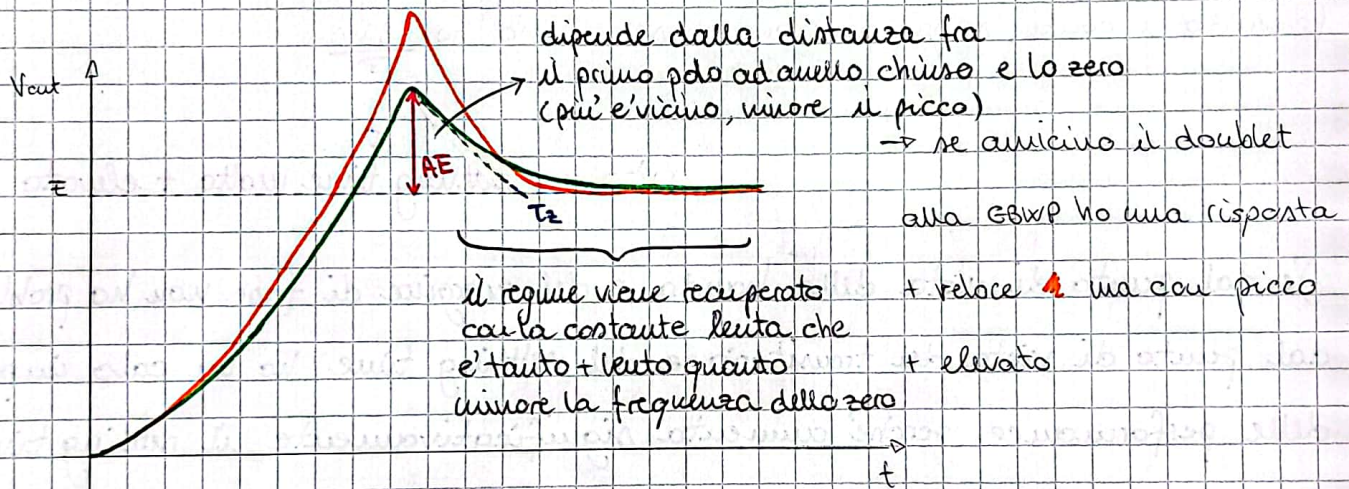 Vout
dipende dalla distanza fra
il primo polo ad anello chiuso e lo zero
(piu' e' vicino, minore il picco)
→ se avvicino il doublet
alla GBWP ho una risposta
+ veloce ma con picco
+ elevato
AE
τz
il regime viene recuperato
con la costante lenta che
e' tanto + lento quanto
minore la frequenza dello zero
t